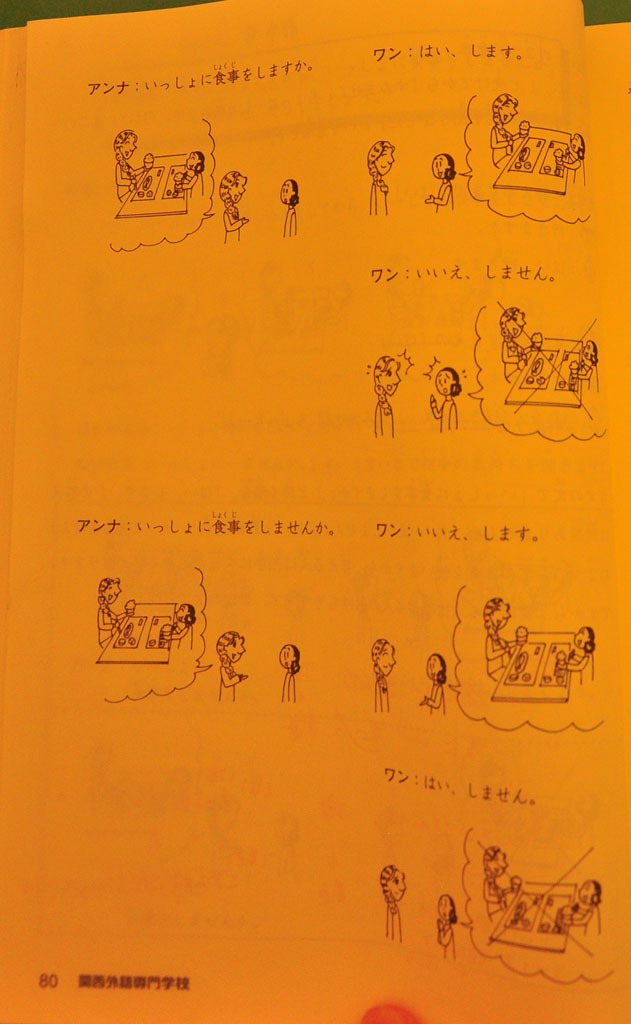 アンナ：いっしょに食事をしますか。
しょくじ
ワン：はい、します。
ワン：いいえ、しません。
アンナ：いっしょに食事をしませんか。
しょくじ
ワン：いいえ、します。
ワン：はい、しません。
80 関西外語専門学校